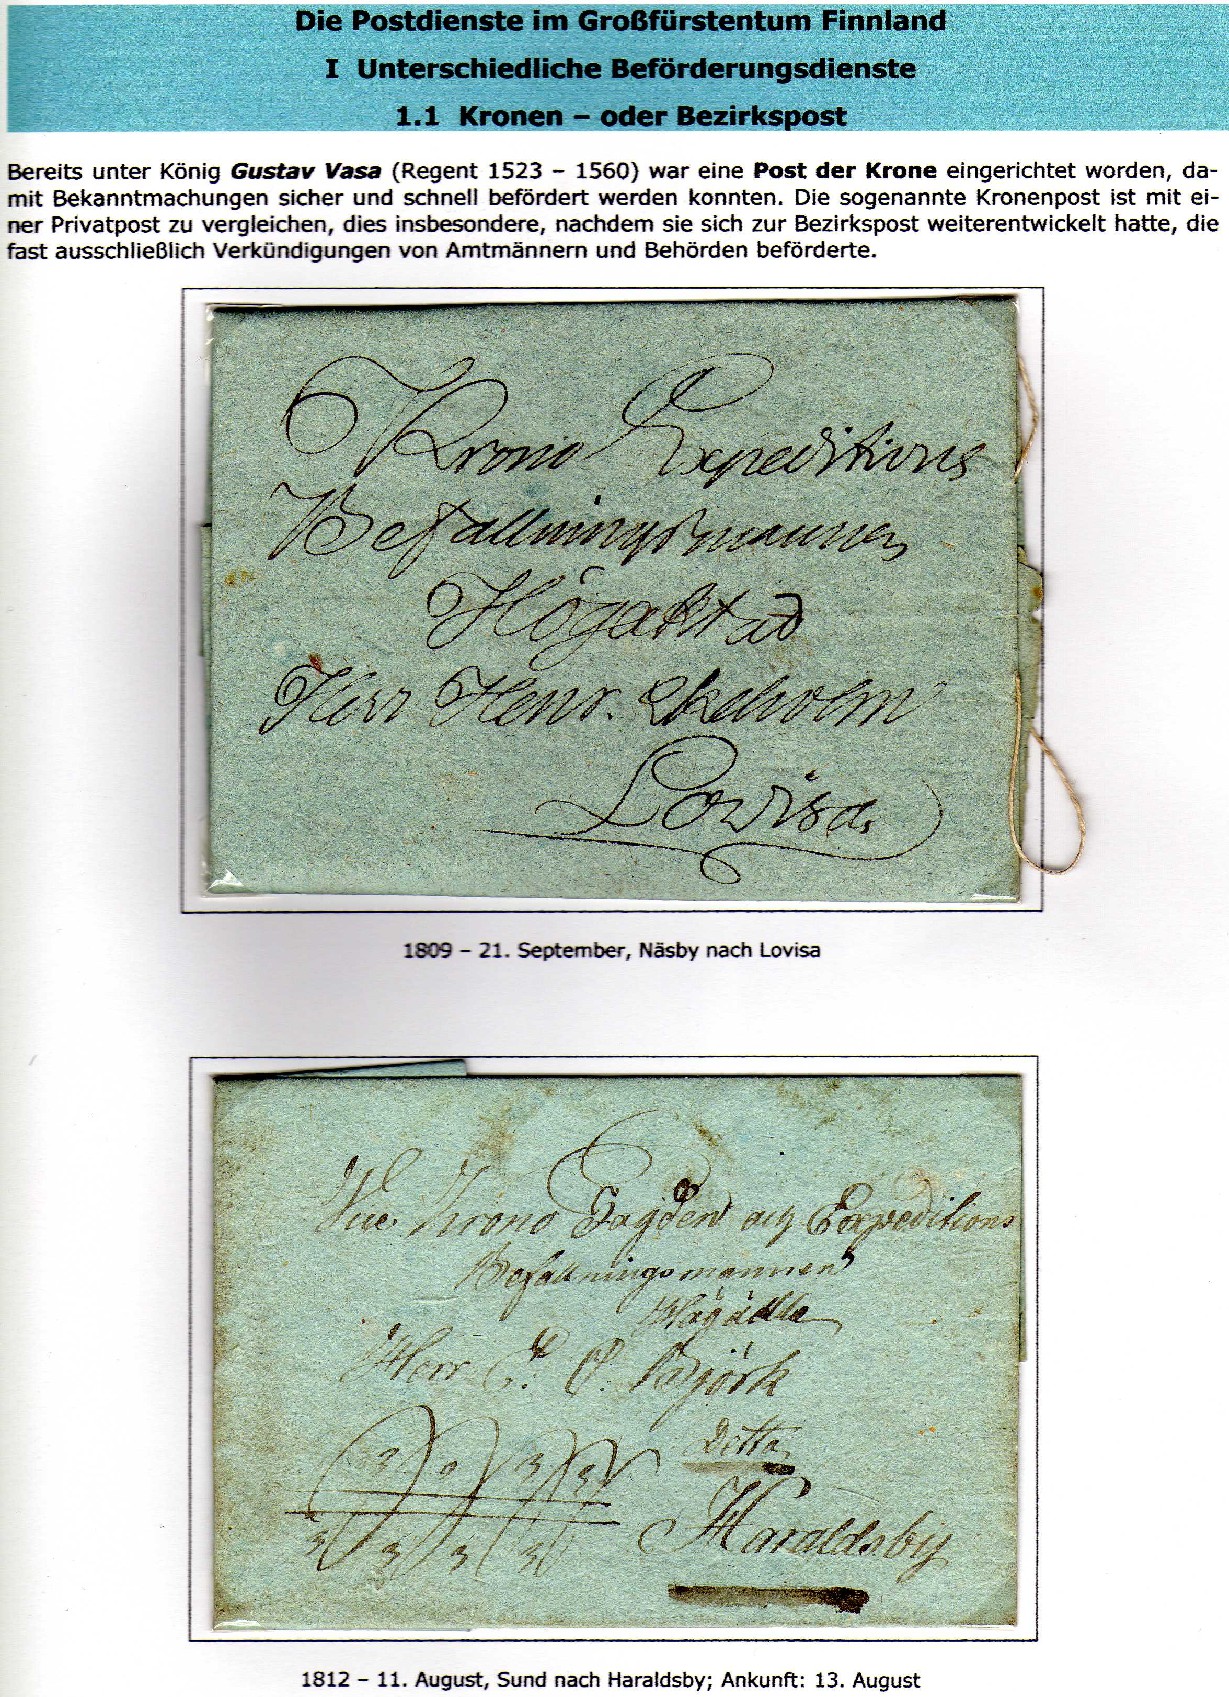 Die Postdienste im Großfürstentum Finnland
I Unterschiedliche Beförderungsdienste
1.1 Kronen – oder Bezirkspost
Bereits unter König Gustav Vasa (Regent 1523 – 1560) war eine Post der Krone eingerichtet worden, da-
mit Bekanntmachungen sicher und schnell befördert werden konnten. Die sogenannte Kronenpost ist mit ei-
ner Privatpost zu vergleichen, dies insbesondere, nachdem sie sich zur Bezirkspost weiterentwickelt hatte, die
fast ausschließlich Verkündigungen von Amtmännern und Behörden beförderte.
Krono Expeditions
Befallningsmannen
Högaktad
Herr Henr. Ekeholm
Lovisa
1809 – 21. September, Näsby nach Lovisa
Vice Krono Fogden och Expeditions
Befallningsmannen
Högädle
Herr E. O. Björk
Ditto
Haraldsby
1812 – 11. August, Sund nach Haraldsby; Ankunft: 13. August